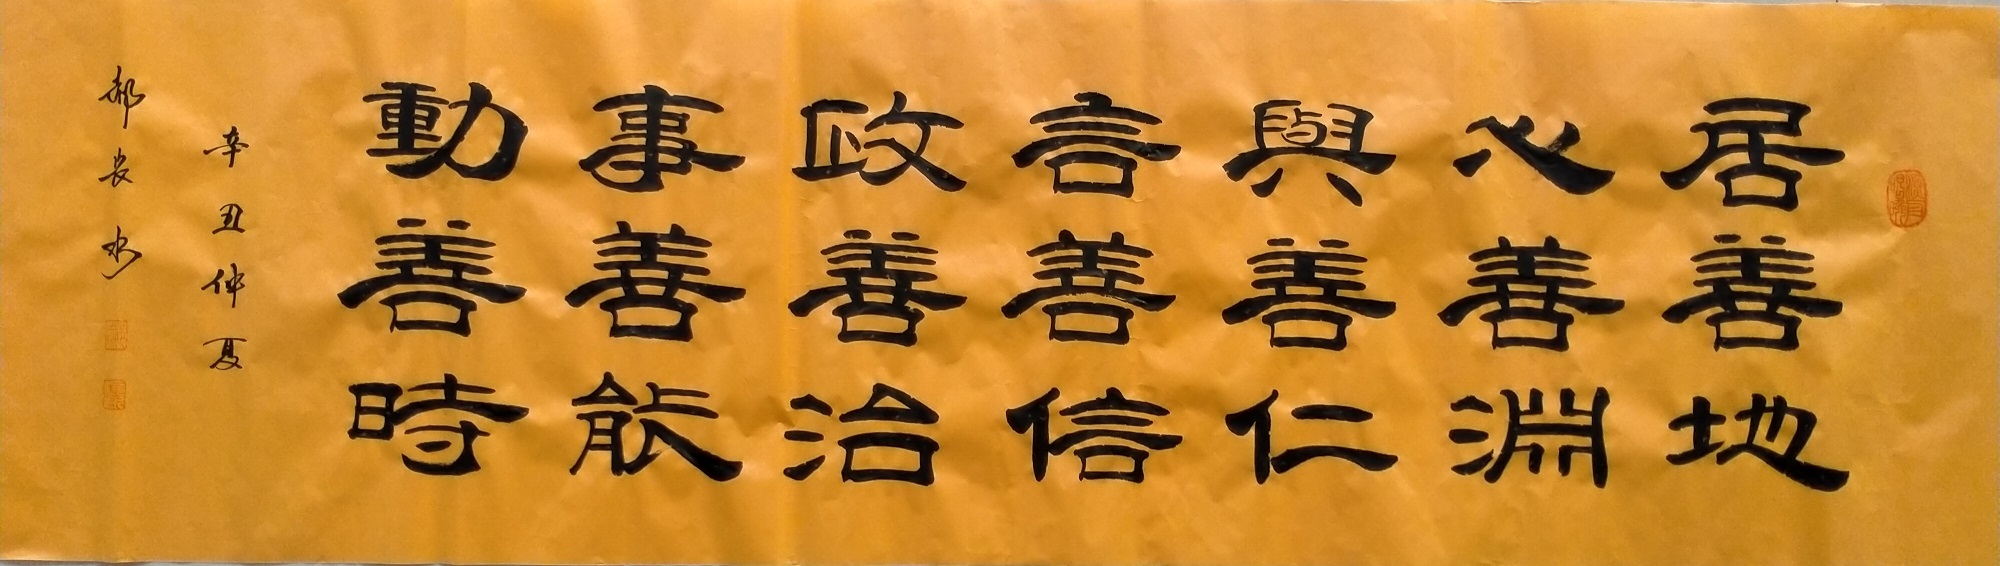 居善地
心善淵
與善仁
言善信
政善治
事善能
動善時
辛丑仲夏
郝長水